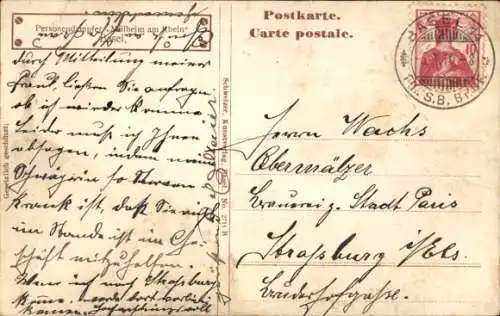 Postkarte.
Carte postale.
Personendampfer „Mülheim am Rhein"
Basel,
durch Mitteilung meiner
Frau, ließen Sie anfragen
ob ich wieder komme
leider muß ich Ihnen
absagen, indem meine
Schwägerin so schwer
krank ist, daß Sie nicht
im Stande ist im Ge-
schäft mitzuhelfen.
Wenn ich nach Straßburg
komme, werde dort vorbei
kommen.
Gesetzlich geschützt.
Schweizer Kunstverlag Basel, Nr. 271 B
BASEL
10
Herrn Wachs
Obermälzer
Brauerei z. Stadt Paris
Straßburg i/Els.
Bruderhofgasse.